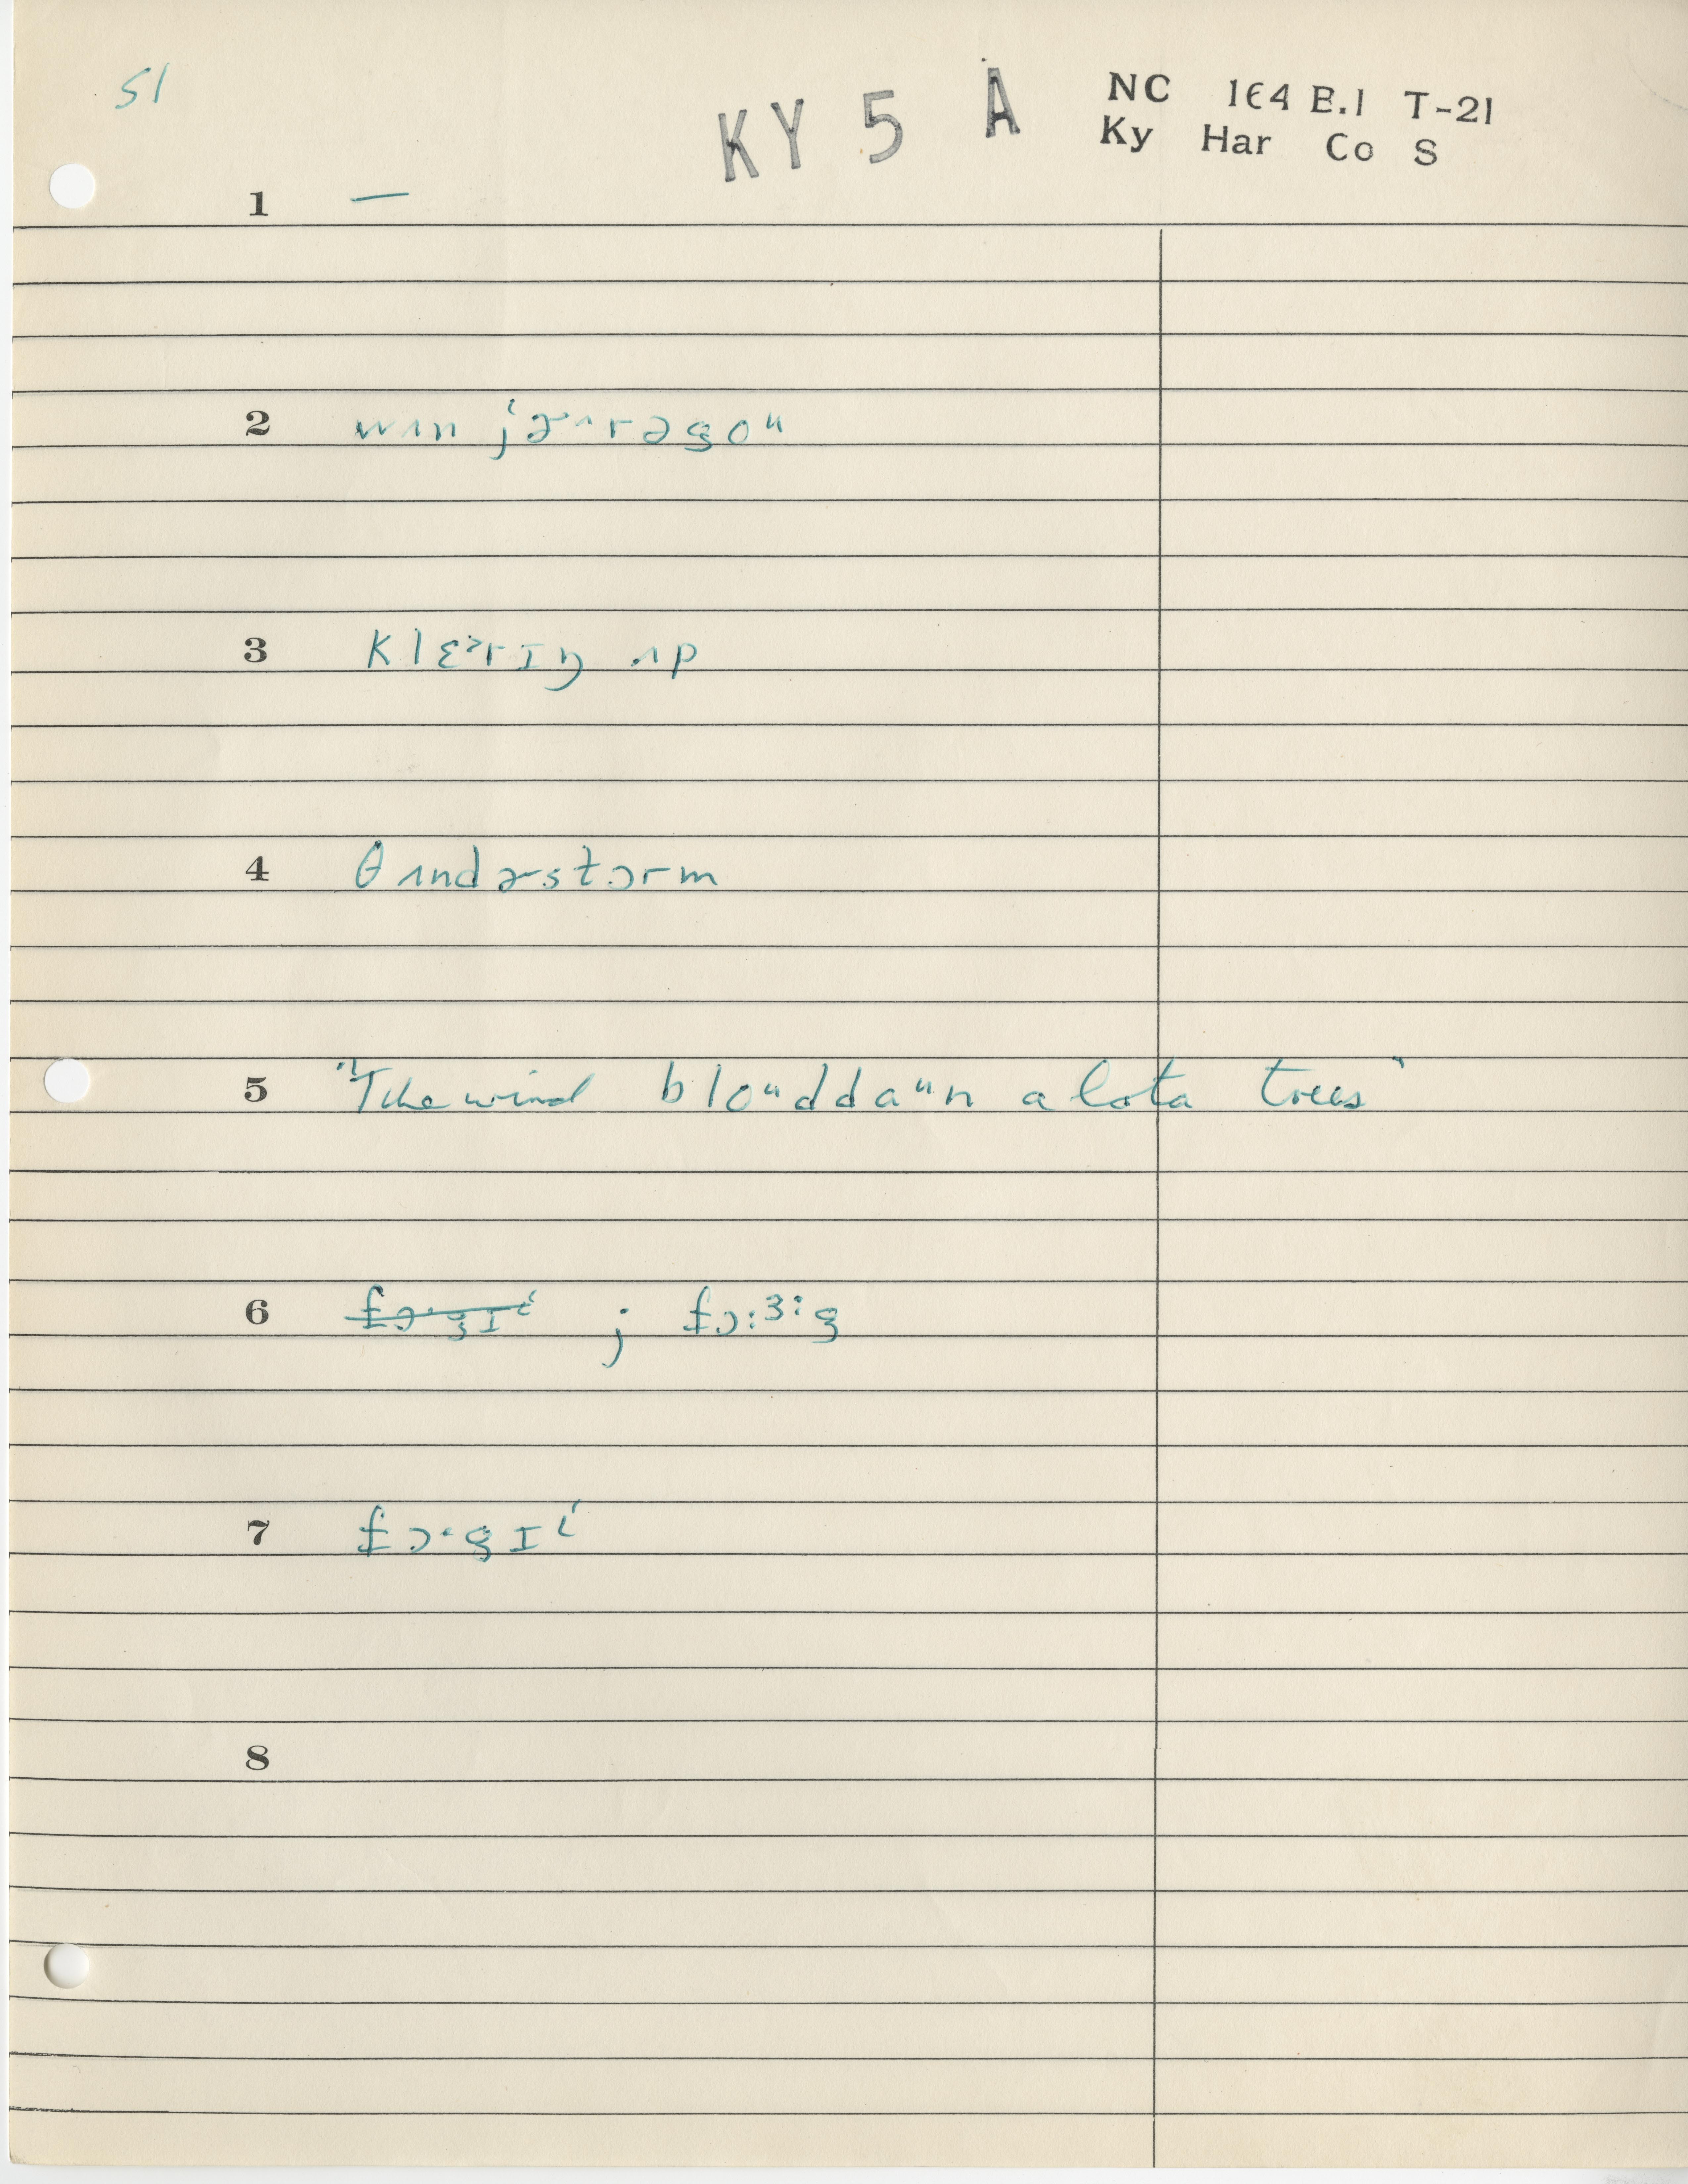 51
KY 5 A
NC 164 E.1 T-21
Ky Har Co S
1 —
2 wʌn jɚʌrəgoᵘ
3 klɛɚrɪŋ ʌp
4 θʌndɚstɔrm
5 "The wind bloᵘd daᵘn a lota trees"
6 fɔ·gɪⁱ ; fɔ:ɜ:g
7 fɔ·gɪⁱ
8